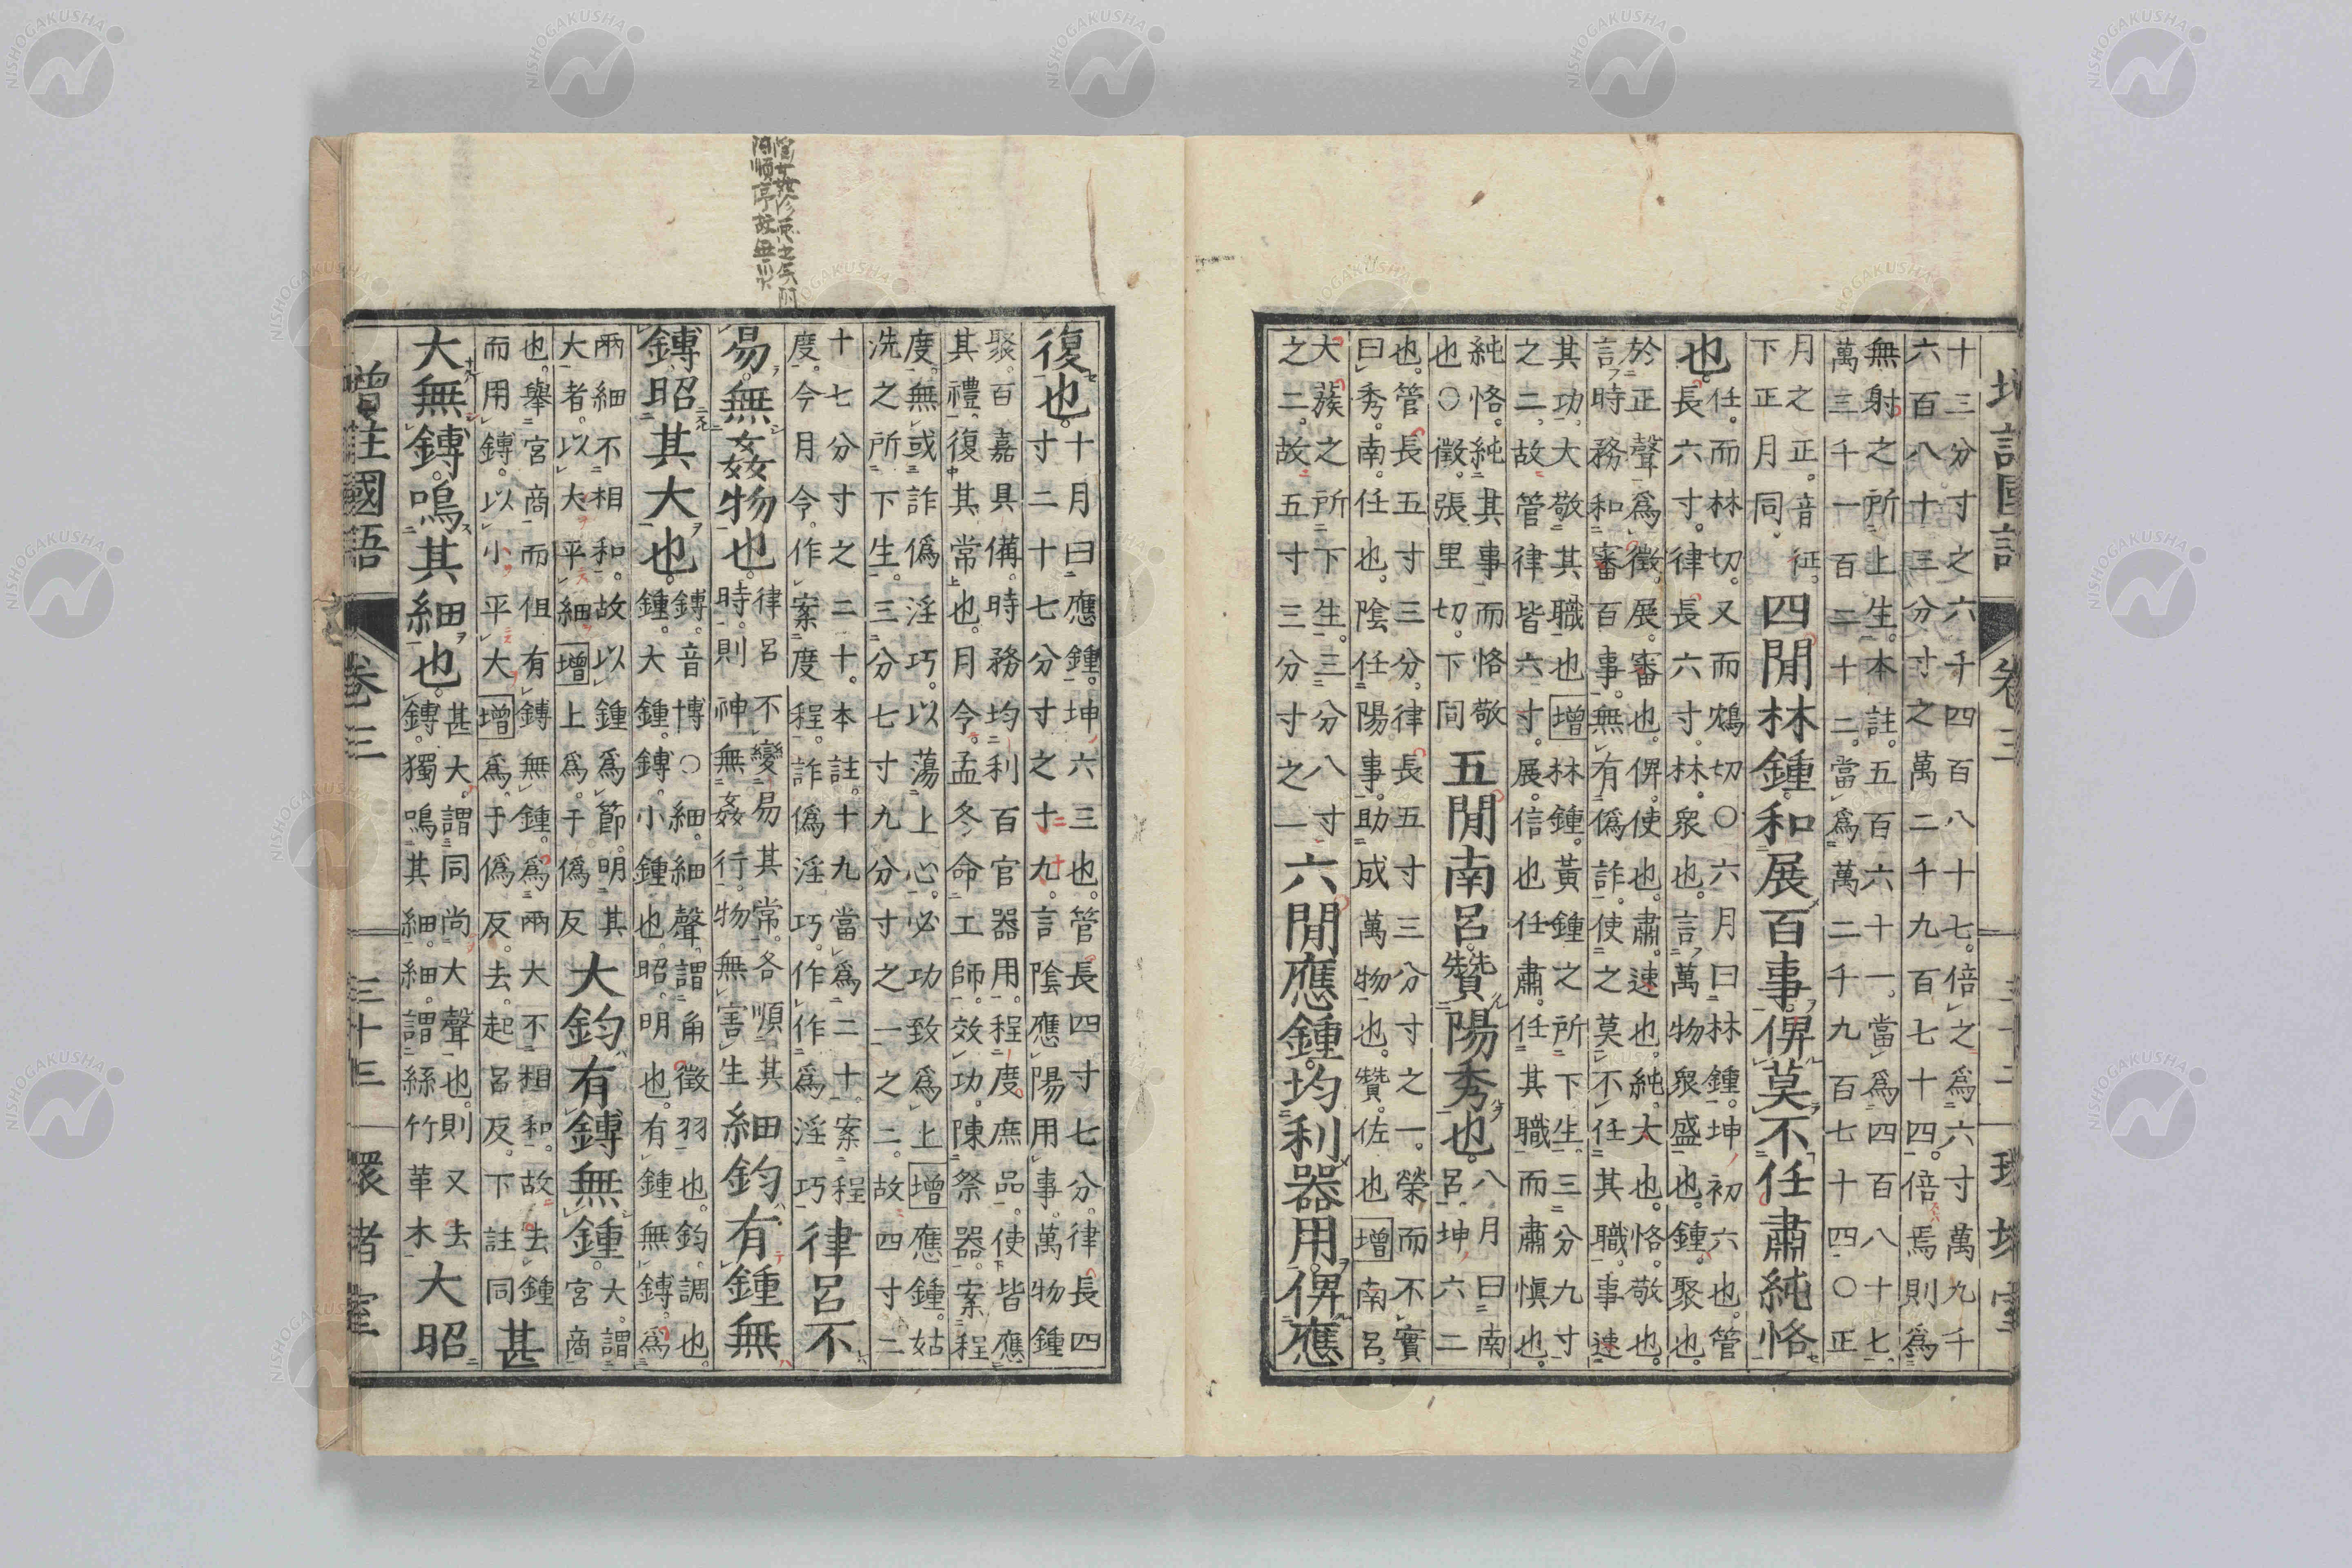 增註國語 卷三 三十二 環堵室
十三分寸之六千四百八十七。倍之爲六寸萬九千
六百八十三分寸之萬二千九百七十四。倍焉則爲
無射之所上生。本註。五百六十一。當爲四百八十七。
萬三千一百二十二。當爲萬二千九百七十四〇正
月之正。音征。
下正月同
四閒林鍾。和展百事。俾莫不任肅純恪
也。
任。而林切。又而鴆切〇六月曰林鍾。坤初六也。管
長六寸。律長六寸。林。衆也。言萬物衆盛也。鍾聚也。
於正聲爲徵。展。審也。俾。使也。肅。速也。純。大也。恪。敬也。
言時務和審百事。無有僞詐。使之莫不任其職事。速
其功。大敬其職也增林鍾。黃鍾之所下生。三分九寸
之二。故管律皆六寸。展。信也任肅。任其職而肅愼也。
純恪。純其事而恪敬
也〇徵。張里切。下同
五閒南呂。贊陽秀也。
八月曰南
呂。坤六二
也。管長五寸三分。律長五寸三分寸之一。榮而不實
曰秀。南。任也。陰任陽事。助成萬物也。贊。佐也增南呂。
大蔟之所下生。三分八寸
之二。故五寸三分寸之一
六閒應鍾。均利器用。俾應
復也。
十月曰應鍾。坤六三也。管長四寸七分。律長四
寸二十七分寸之十九。言陰應陽用事。萬物鍾
聚。百嘉具備。時務均利百官器用。程度庶品。使皆應
其禮。復其常也。月令。孟冬。命工師。效功。陳祭器。案程
度。無或詐僞淫巧。以蕩上心。必功致爲上增應鍾。姑
洗之所下生。三分七寸九分寸之一之二。故四寸二
十七分寸之二十。本註。十九當爲二十。案程
度。今月令。作案度程。詐僞淫巧。作作爲淫巧
律呂不
易。無姦物也。
律呂不變易其常。各順其
時。則神無姦行。物無害生
細鈞有鍾無
鎛。昭其大也。
鎛。音博〇細。細聲。謂角徵羽也。鈞。調也。
鍾。大鍾。鎛。小鍾也。昭。明也。有鍾無鎛。爲
兩細不相和。故以鍾爲節。明其
大者。以大平細增上爲。于僞反
大鈞有鎛無鍾。
大。謂
宮商
也。舉宮商而但有鎛無鍾。爲兩大不相和。故去鍾
而用鎛。以小平大增爲。于僞反。去。起呂反。下註同
甚
大無鎛。鳴其細也。
甚大。謂同尚大聲也。則又去
鎛。獨鳴其細。細。謂絲竹革木
大昭
增註國語 卷三 三十三 環堵室